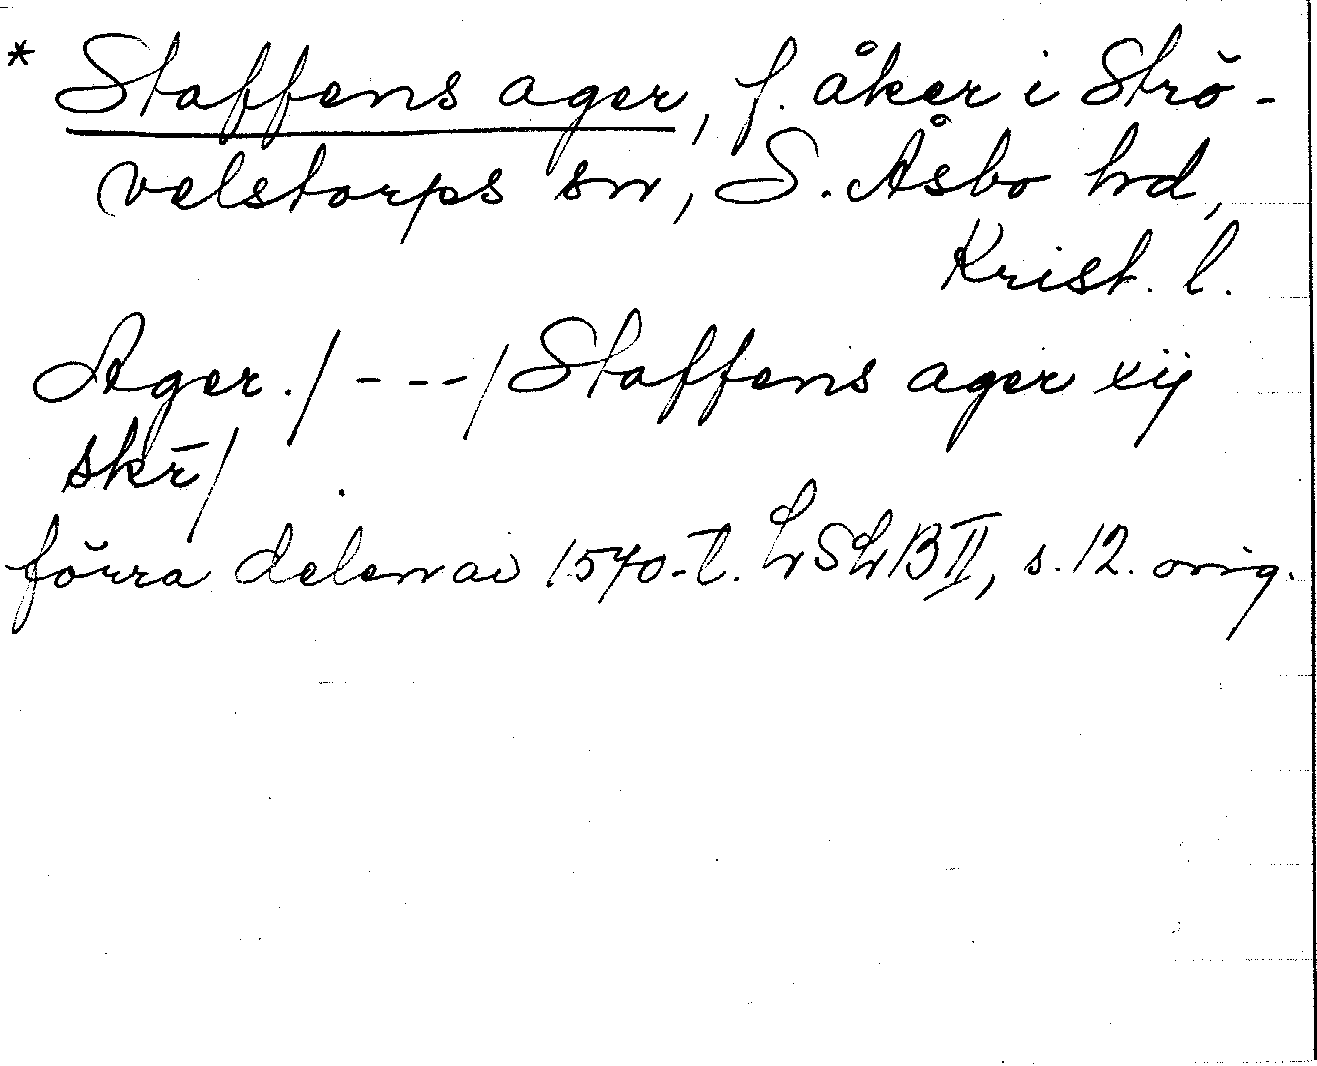 * Staffens ager, f. åker i Strö-
velstorps sn, S. Åsbo hd,
Krist. l.
Ager./ - - -/ Staffens ager xij
skr̄/
förra delen av 1570-t. LSLB II, s. 12. orig.